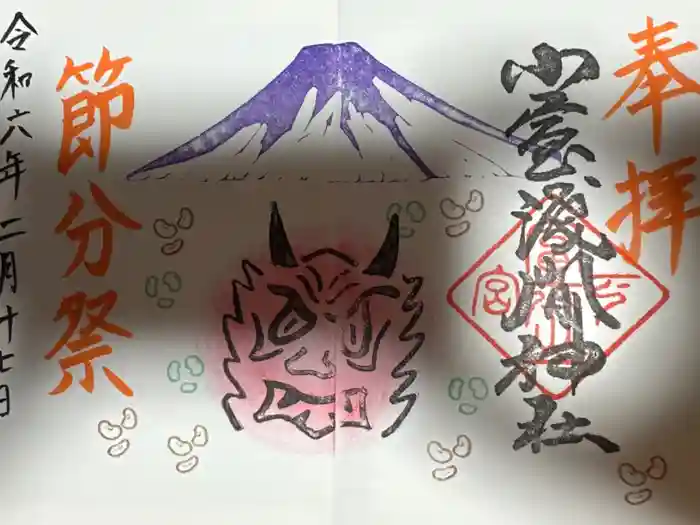 奉拝
小室浅間神社
節分祭
令和六年二月十七日